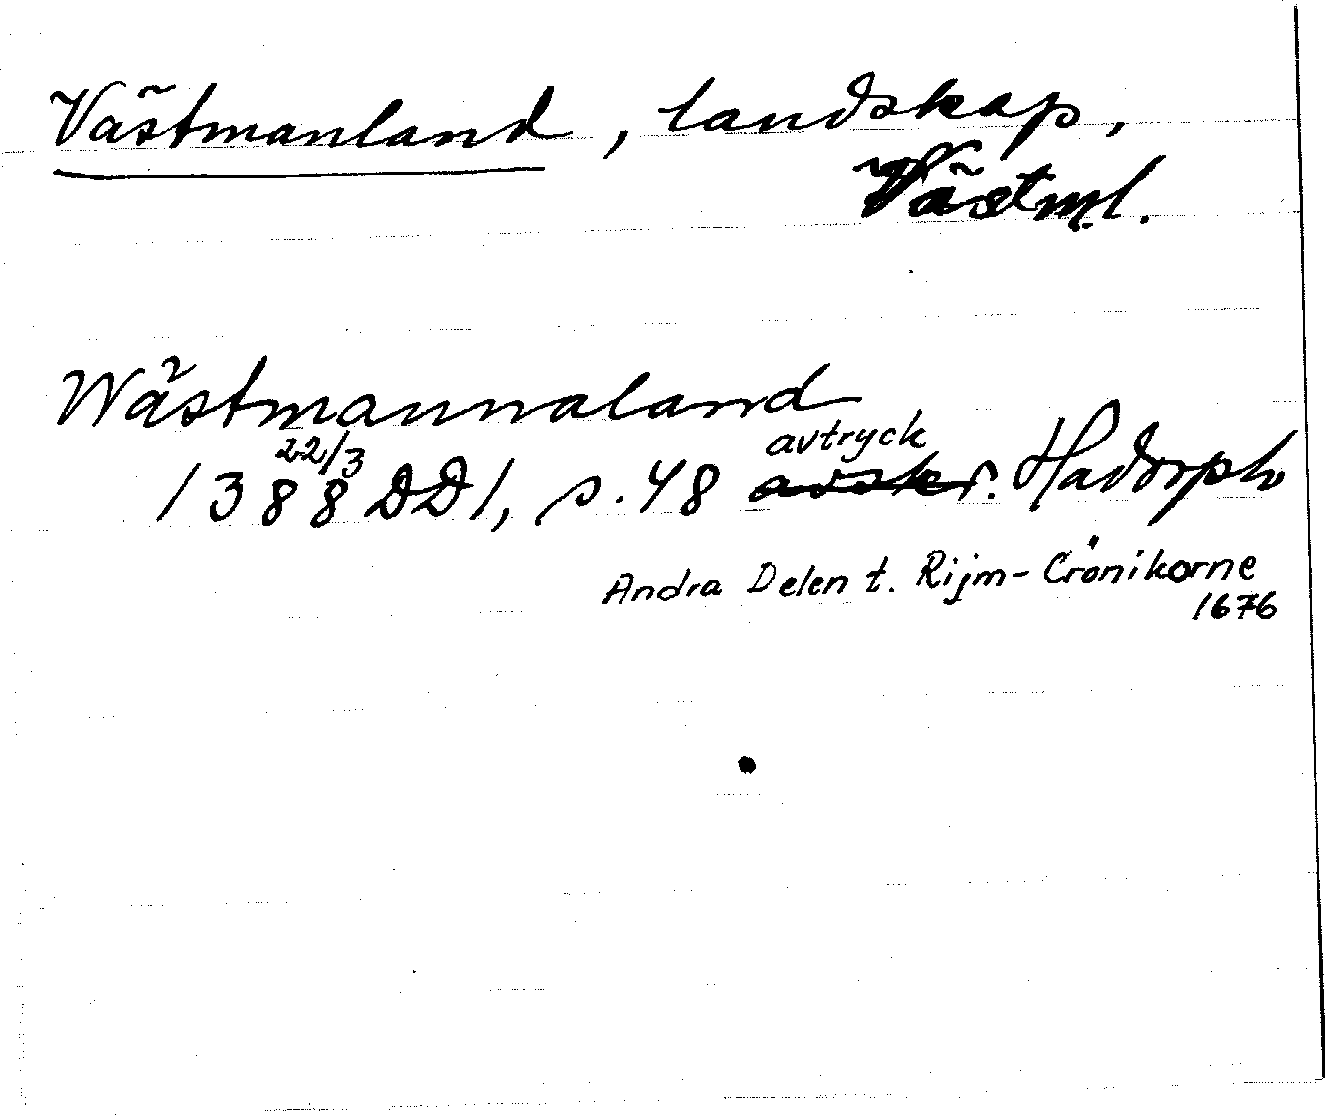 Västmanland, landskap,
Västml.
Wästmannaland
22/3 avtryck
1388 DD1, s. 48 avskr. Hadorph
Andra Delen t. Rijm-Crönikorne
1676